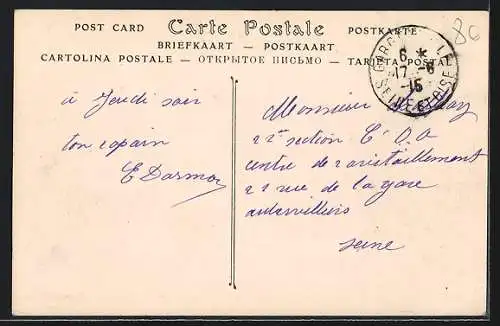 POST CARD Carte Postale POSTKARTE
BRIEFKAART — POSTKAART
CARTOLINA POSTALE — ОТКРЫТОЕ ПИСЬМО — TARJETA POSTAL
80
6 *
17 -6
-15
SEINE-ET-OISE
à Jeudi soir
ton copain
E Darmon
Monsieur
22e section C.O.A
centre de ravistaillement
22 rue de la gare
aubervilliers
Seine